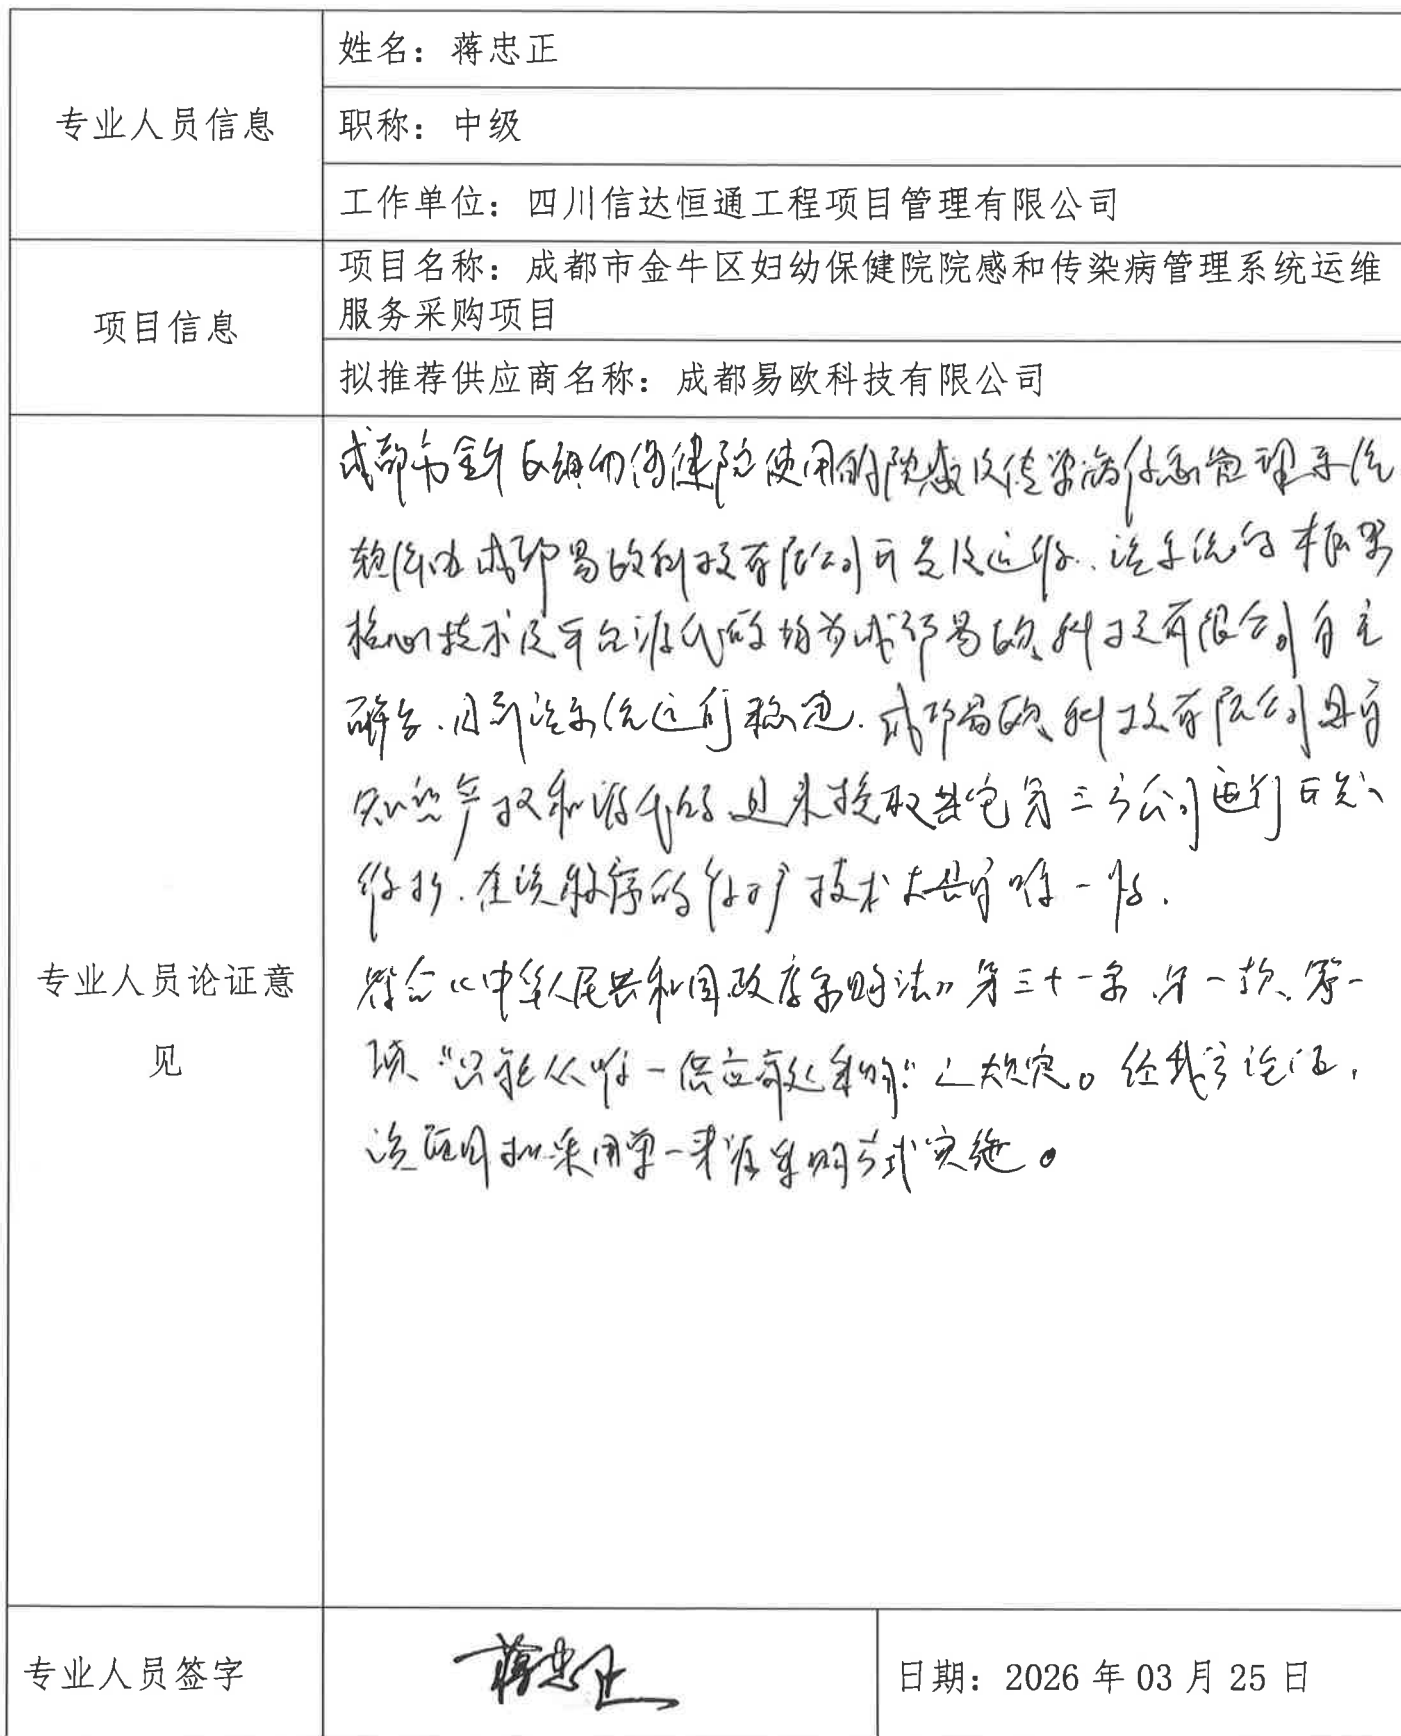 专业人员信息
姓名：蒋忠正
职称：中级
工作单位：四川信达恒通工程项目管理有限公司
项目信息
项目名称：成都市金牛区妇幼保健院院感和传染病管理系统运维
服务采购项目
拟推荐供应商名称：成都易欧科技有限公司
专业人员论证意
见
成都市金牛区妇幼保健院使用的院感及传染病信息管理系统
软件由成都易欧科技有限公司开发及运维、该系统的框架
核心技术及平台源代码均为成都易欧科技有限公司自主
研发、目前该系统运行稳定. 成都易欧科技有限公司具有
知识产权和源代码且未授权其它第三方公司进行开发、
维护. 在该软序的维护技术上具有唯一性.
符合《中华人民共和国政府采购法》第三十一条、第一款、第一
项“只能从唯一供应商处采购”之规定。经我方论证，
该项目拟采用单一来源采购方式实施。
专业人员签字
蒋忠正
日期：2026 年 03 月 25 日